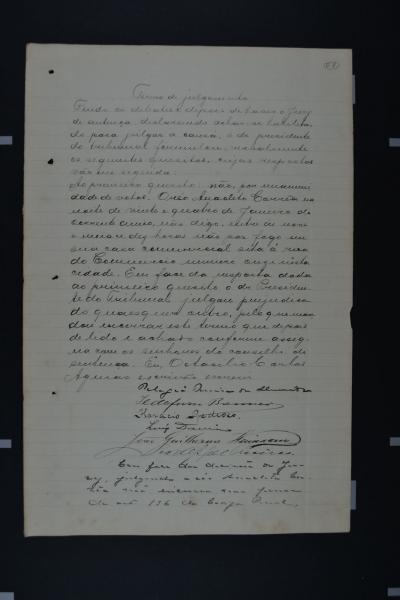 Termo de julgamento
Findo os debates e depois de haver o Jury
de sentença declarando achar-se habilita
do para julgar a causa, o dr presidente
do tribunal formulou, verbalmente
os seguintes quesitos, cujas respostas
vão em seguida:
Ao primeiro quesito: não, por unanimi
dade de votos. O réo Anacleto Corrêa na
noite de vinte e quatro de Janeiro do
corrente anno, não digo, entre as nove
e meia e dez horas não poz fogo em
sua casa commercial sita á rua
do Commercio numero onze nesta
cidade. Em face da resposta dada
ao primeiro quesito o dr Presiden-
te do Tribunal julgou prejudica
do quaesquer outro, pelo que man
dou encerrar este termo que depois
de lido e achado conforme assig-
na com os senhores do conselho de
sentença. Eu, Octacilio Carlos
escrivão escrevi
Ildefonso
Horacio
Luiz
José Guilherme
Em face da decisão do Ju-
ry, julgando o réo Anacleto
não
do art 136 do Codigo Penal,